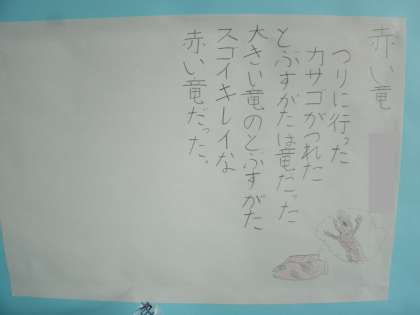 赤い竜
つりに行った
カサゴがつれた
とぶすがたは竜だった
大きい竜のとぶすがた
スゴイキレイな
赤い竜だった。